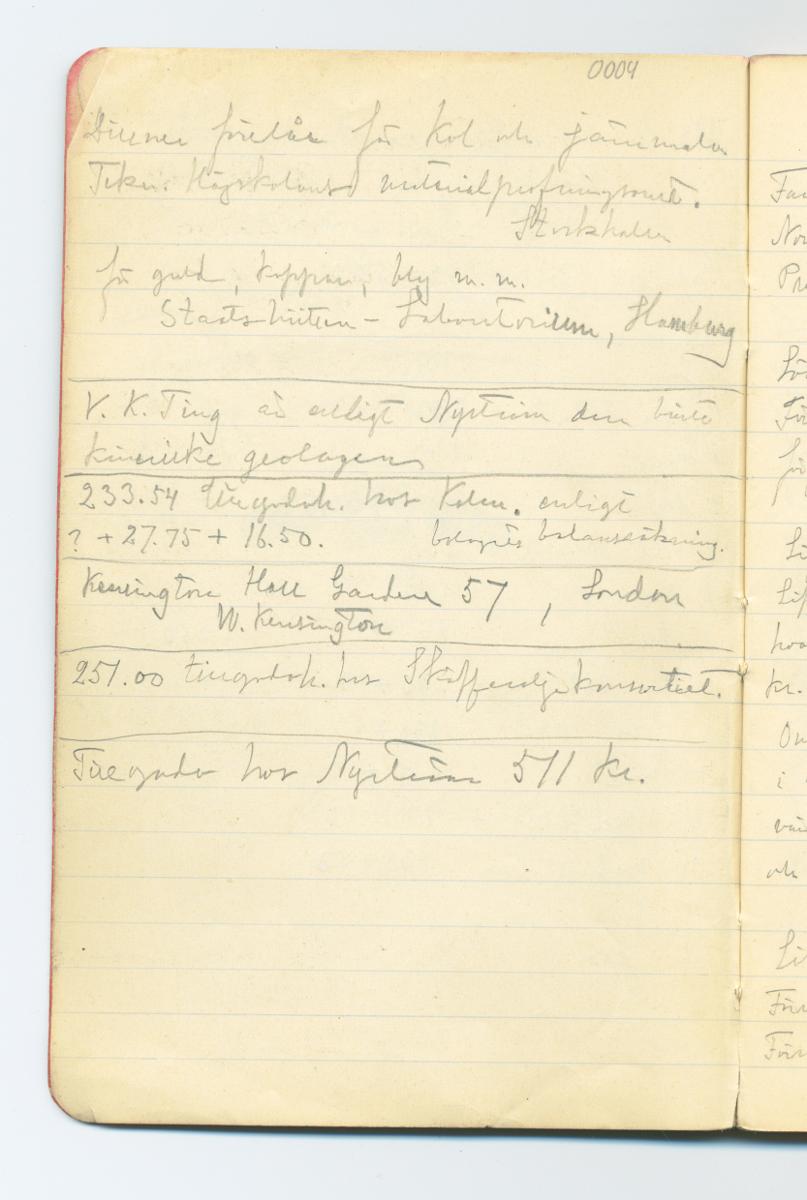 0004
Diener föreslår för kol och järnmalm
Tekn. Högskolans materialprofningsanst.
Stockholm
för guld, koppar, bly m.m.
Staatshütten-Laboratorium, Hamburg
V. K. Ting är enligt Nyström den bäste
kinesiske geologen
233.54 tillgodoh. hos Kolm. enligt
? + 27.75 + 16.50. bolagets balansräkning.
Kensington Hall Gardens 57, London
W. Kensington
251.00 tillgodoh. hos Skifferoljekonsortiet.
Tillgodo hos Nyström 511 kr.
Nor
kr.
i
och